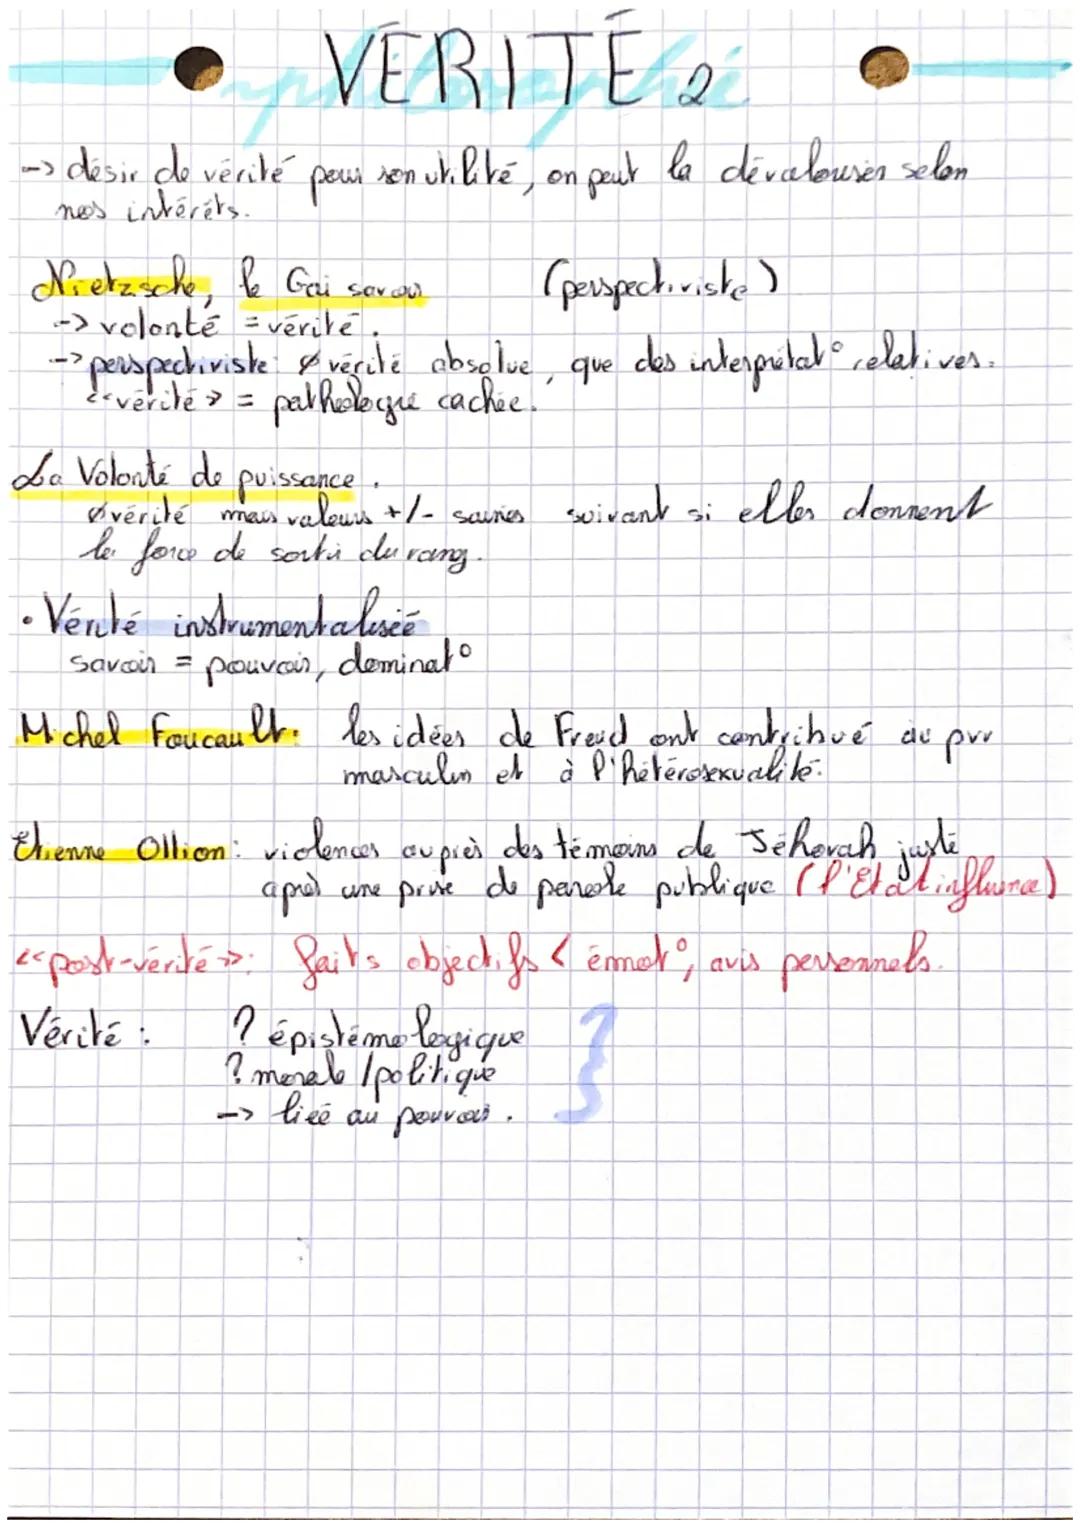 VÉRITÉ 2
philosophie
-> désir de vérité pour son utilité, on peut la dévaloriser selon
nos intérêts.
Nietzsche, le Gai savoir (perspectiviste)
-> volonté = vérité.
-> perspectiviste: ∅ vérité absolue, que des interprétat° relatives.
<<vérité>> = pathologie cachée.
La Volonté de puissance.
∅ vérité mais valeurs +/- saines suivant si elles donnent
la force de sortir du rang.
• Vérité instrumentalisée
savoir = pouvoir, dominat°
Michel Foucault: les idées de Freud ont contribué au pvr
masculin et à l'hétérosexualité.
Etienne Ollion: violences auprès des témoins de Jéhovah juste
après une prise de parole publique (l'Etat influence)
<<post-vérité>>: faits objectifs < émot°, avis personnels.
Vérité : ? épistémologique
? morale / politique
-> liée au pouvoir.